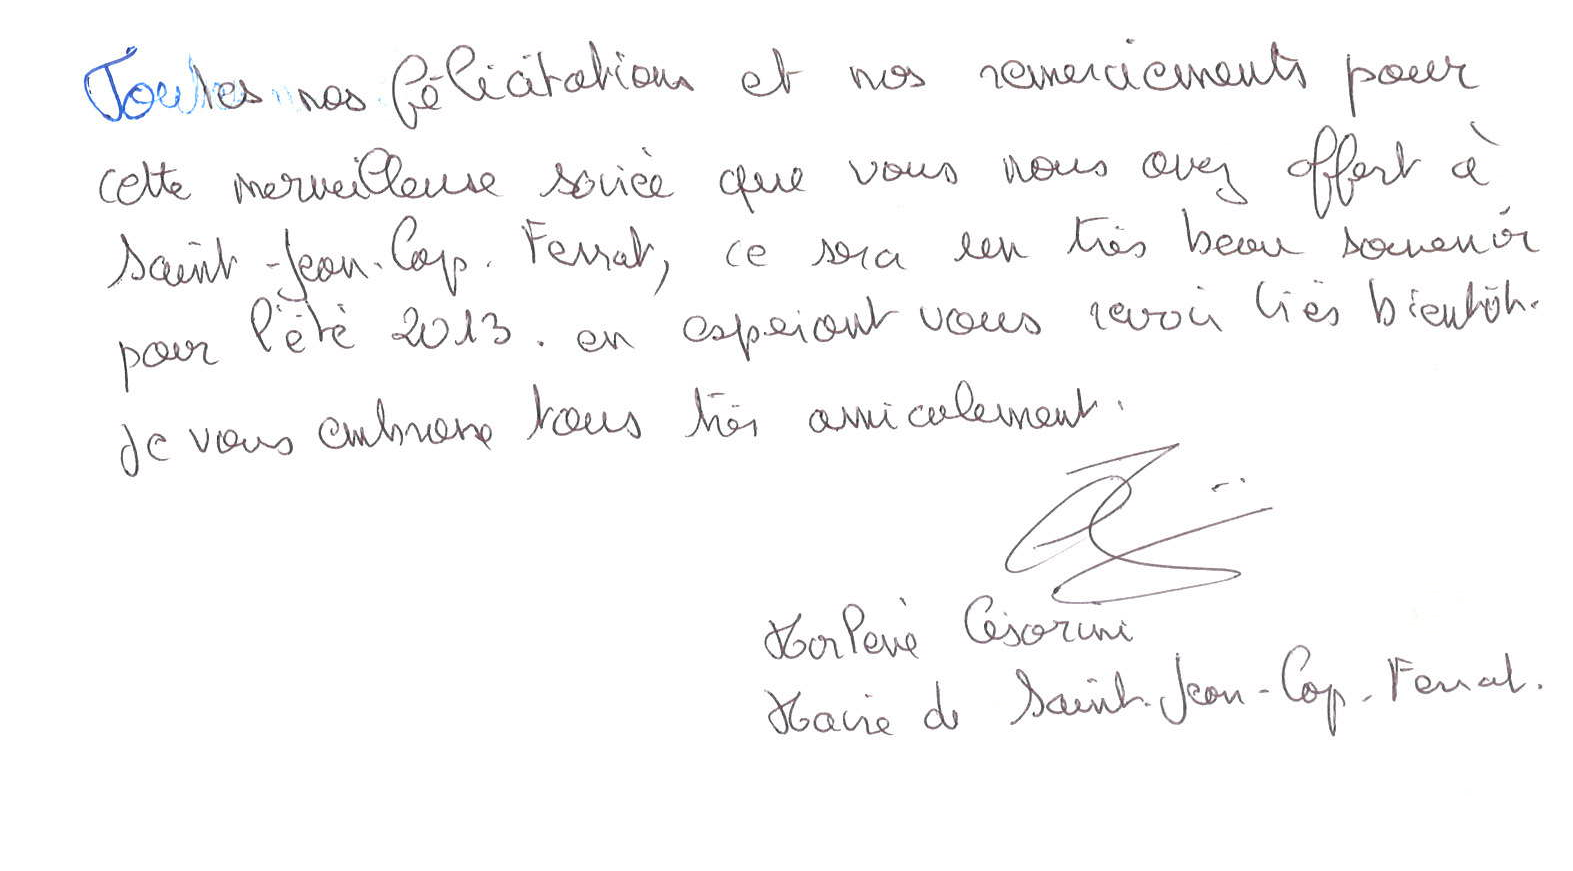 Toutes nos félicitations et nos remerciements pour
cette merveilleuse soirée que vous nous avez offert à
Saint-Jean-Cap-Ferrat, ce sera un très beau souvenir
pour l'été 2013. en espérant vous revoir très bientôt.
Je vous embrasse tous très amicalement.
Marlène Césarini
Maire de Saint-Jean-Cap-Ferrat.